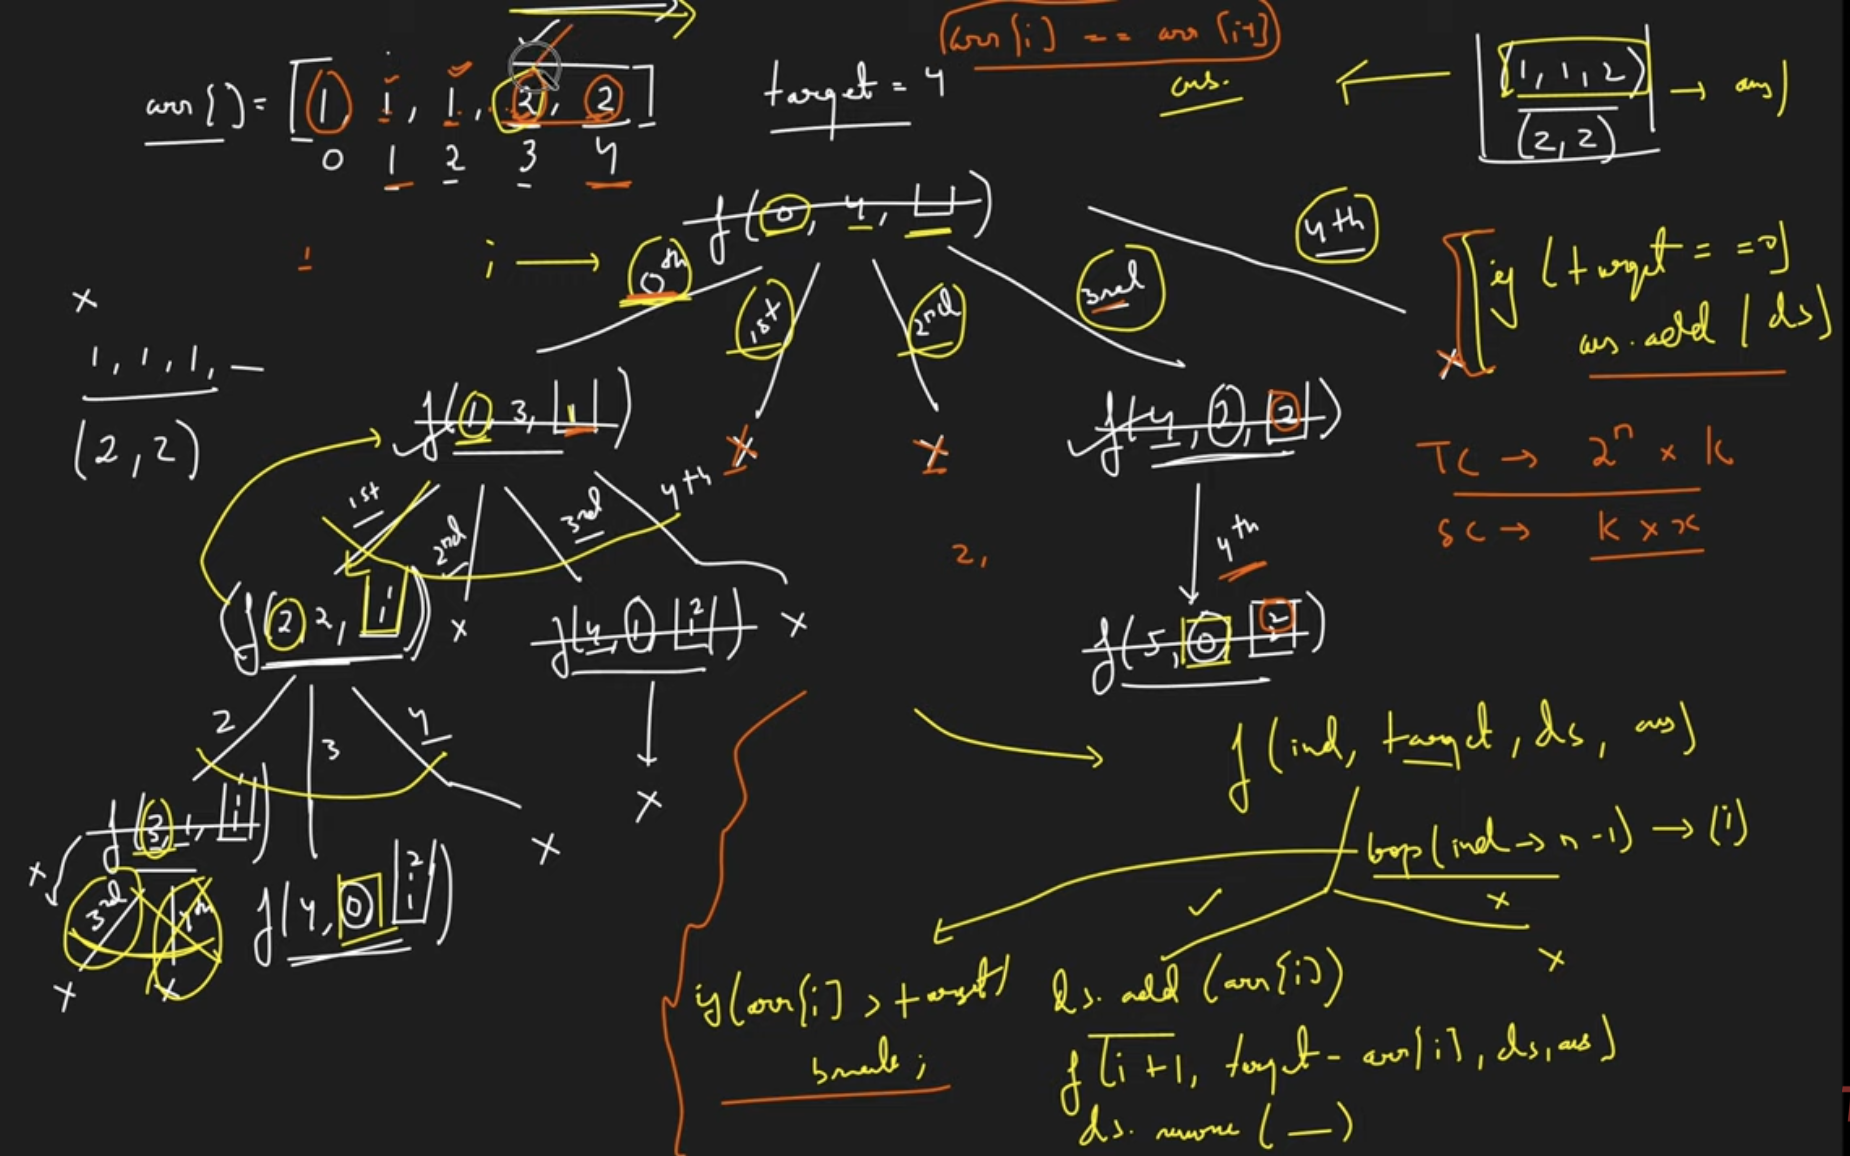 arr[i] == arr[i+1]
arr[] = [1, 1, 1, 2, 2]
0 1 2 3 4
target = 4
ans.
(1, 1, 2) → ans
(2, 2)
f(0, 4, )
i →
0th
1st
2nd
3rd
4th
if (target == 0)
ans.add (ds)
x
1, 1, 1, _
(2, 2)
f(1, 3, 1)
x
x
f(4, 2, 2)
x
TC → 2^n x k
SC → k x x
1st
2nd
3rd
4th
2,
4th
f(2, 2, 1 1)
x
f(4, 1, 2 1)
x
f(5, 0, 2 2)
2
3
4
x
x
f(3, 1, 1 1 1)
x
3rd
4th
x
x
f(4, 0, 2 1 1)
f(ind, target, ds, ans)
loop(ind → n-1) → (i)
✓
x
x
if(arr[i] > target)
break;
ds.add (arr[i])
f(i+1, target - arr[i], ds, ans)
ds. remove ( _ )